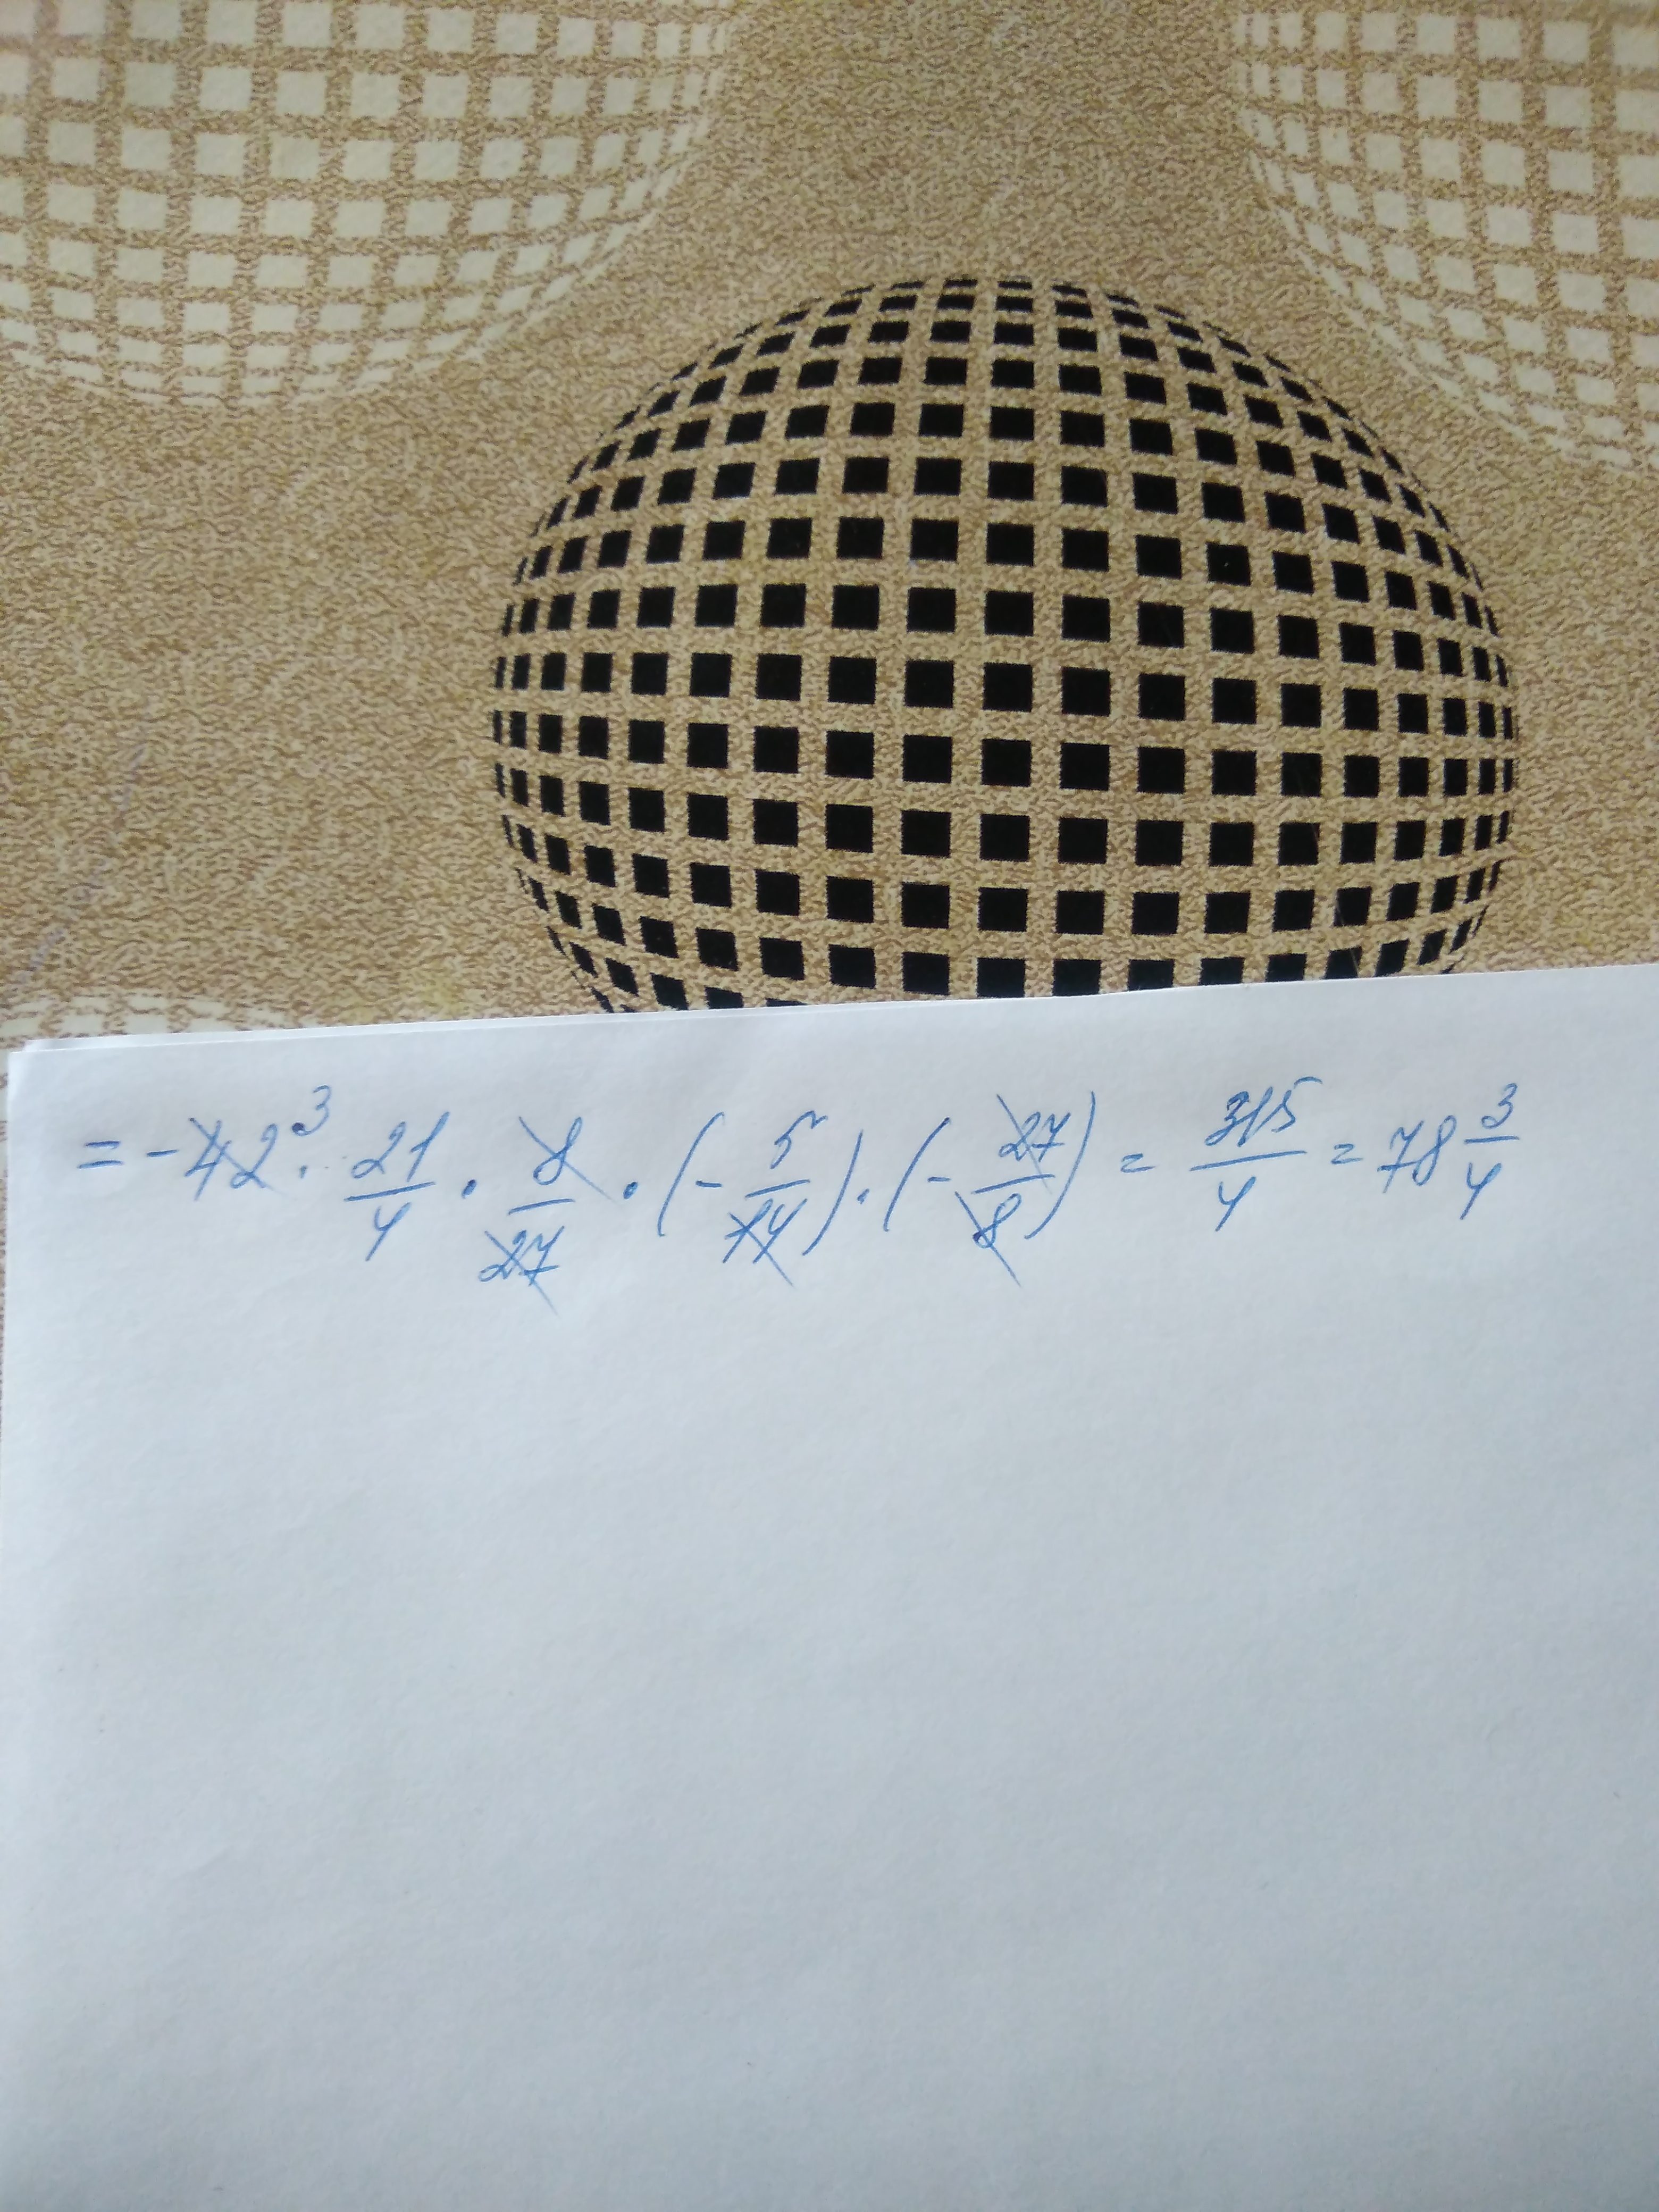 = -42³ · 21/4 · 8/27 · (- 5/14) · (- 27/8) = 315/4 = 78 3/4